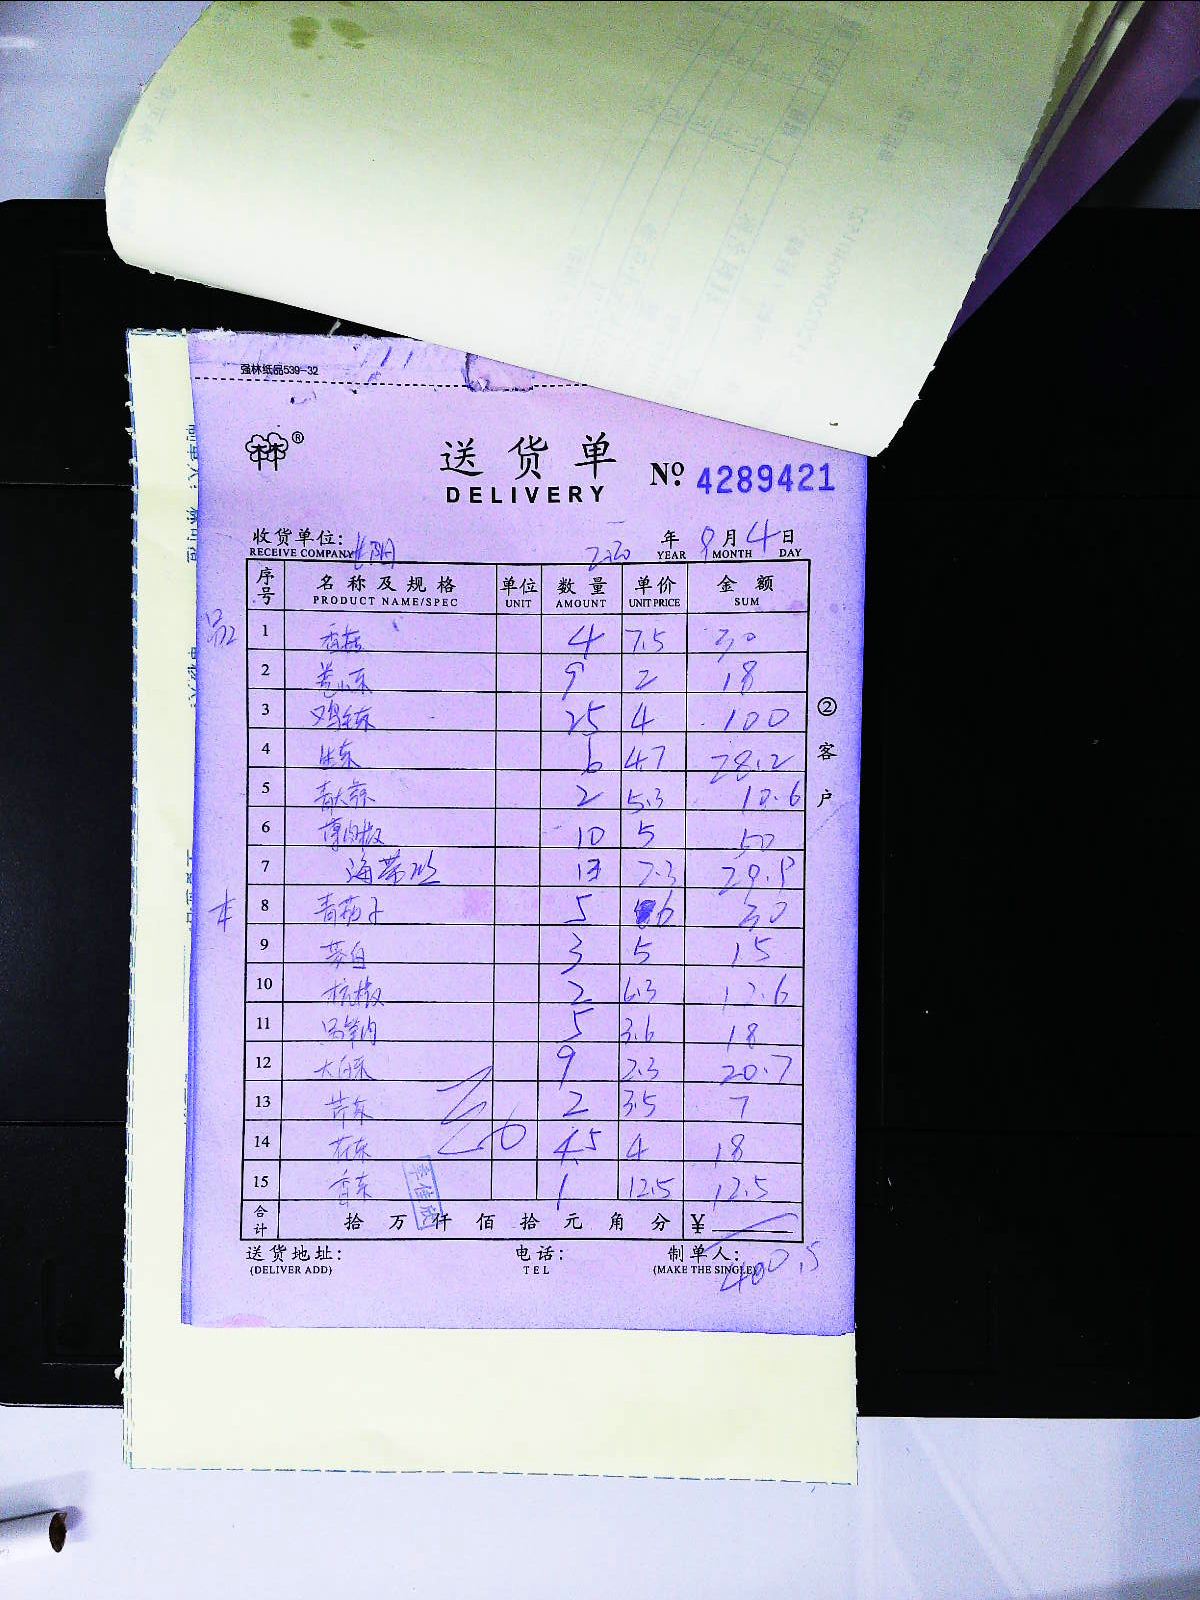 强林纸品539-32
林® 送货单 № 4289421
DELIVERY
收货单位: 2020 年 9 月 4 日
RECEIVE COMPANY YEAR MONTH DAY
序号 名称及规格 单位 数量 单价 金额
PRODUCT NAME/SPEC UNIT AMOUNT UNIT PRICE SUM
1 香菇 4 7.5 30
2 9 2 18
3 25 4 100
4 生菜 6 4.7 28.2
5 青大蒜 2 5.3 10.6
6 薄肉椒 10 5 50
7 海带丝 13 2.3 29.9
8 青茄子 5 6 30
9 茭白 3 5 15
10 杭椒 2 6.3 12.6
11 5 3.6 18
12 大白菜 9 2.3 20.7
13 芹菜 2 3.5 7
14 花菜 4.5 4 18
15 香菜 1 12.5 12.5
合计 拾 万 仟 佰 拾 元 角 分 ¥
李佳欣
400.5
送货地址: 电话: 制单人:
(DELIVER ADD) TEL (MAKE THE SINGLE)
②客户